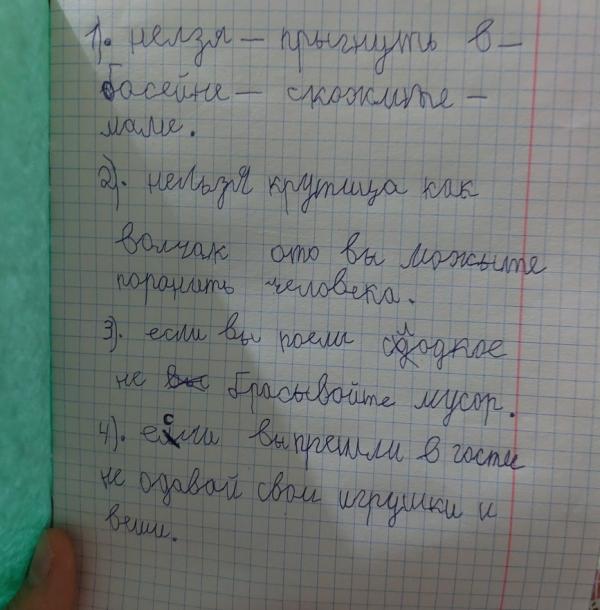 1). нелзя — прыгнуть в —
басейне — скожите —
маме.
2). нельзя крутица как
волчак ото вы можыте
поранить человека.
3). если вы поели сладкое
не брасывойте мусор.
4). если выпрешли в гости
не одавай свои игрушки и
веши.